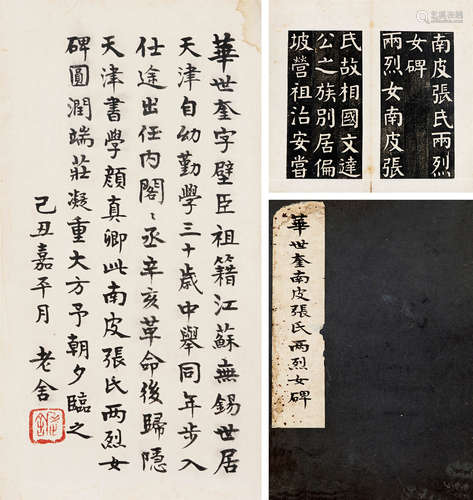 華世奎字璧臣祖籍江蘇無錫世居
天津自幼勤學三十歲中舉同年步入
仕途出任内閣閣丞辛亥革命後歸隱
天津書學顔真卿此南皮張氏兩烈女
碑圓潤端莊凝重大方予朝夕臨之
己丑嘉平月 老舍
南皮張氏兩烈
女碑
兩烈女南皮張
氏故相國文達
公之族別居偏
坡營祖治安嘗
華世奎南皮張氏兩烈女碑